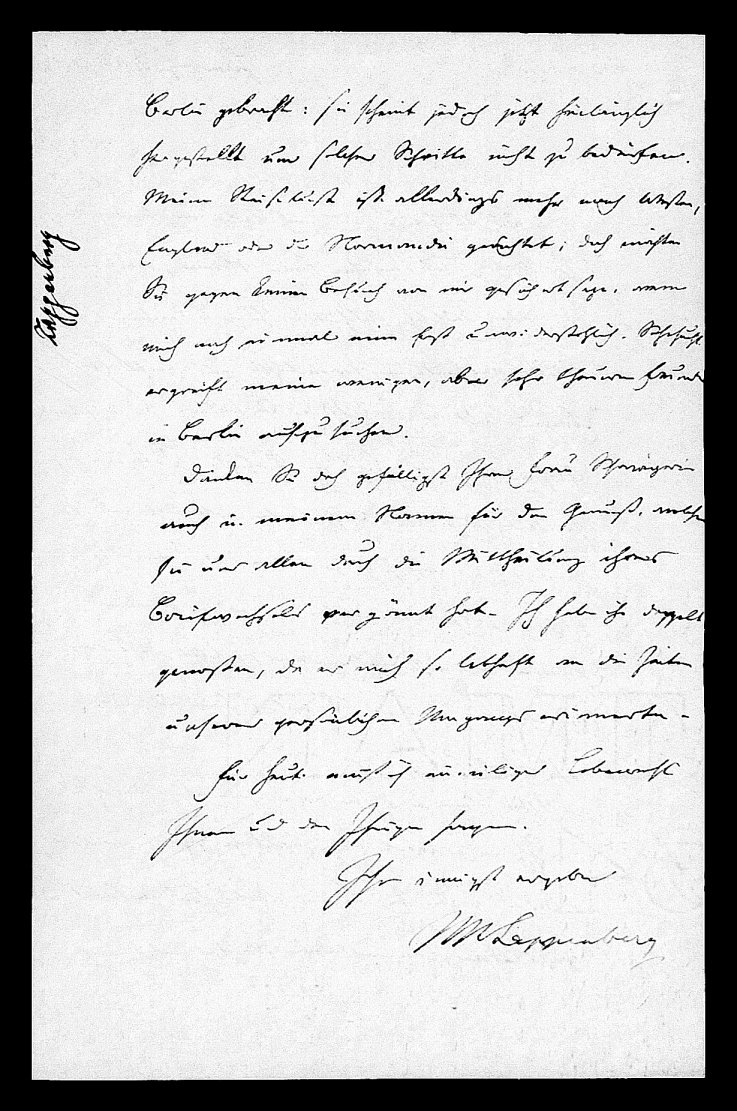 Berlin gebracht: sie scheint jedoch jetzt hinlänglich
hergestellt um solcher Schritte nicht zu bedürfen.
Meine Reiselust ist allerdings mehr nach Westen,
England oder die Normandie gerichtet; doch möchten
Sie gegen keinen Besuch von mir gesichert seyn, wenn
mich noch einmal eine fast unwiderstehlich. Sehnsucht
ergreift meine wenigen, aber sehr theuren Freunde
in Berlin aufzusuchen.
Danken Sie doch gefälligst Ihrer Frau Schwägerin
auch in meinem Namen für den Genuß, welchen
sie uns allen durch die Mittheilung ihres
Briefwechsels vergönnt hat. Ich habe ihn doppelt
genossen, da er mich so lebhaft an die Zeiten
unseres persönlichen Umgangs erinnerte.
Für heute muß ich ein eiliges Lebewohl
Ihnen und den Ihrigen sagen.
Ihr innigst ergebener
JMLappenberg
Lappenberg